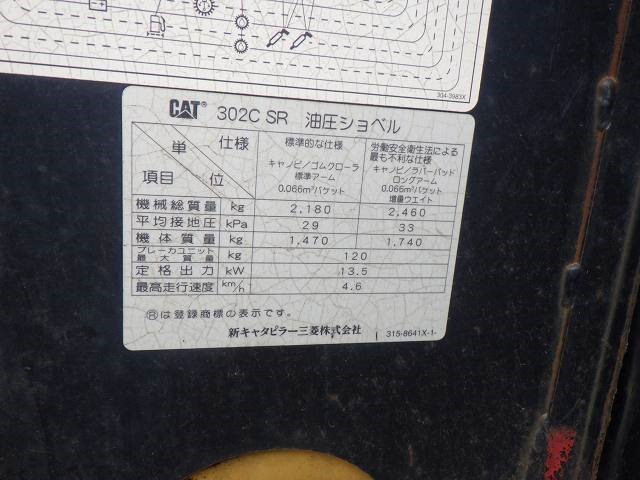 304-3983X
CAT® 302C SR 油圧ショベル
単位 仕様 項目 標準的な仕様 労働安全衛生法による最も不利な仕様
キャノピ/ゴムクローラ キャノピ/ラバーパッド
標準アーム ロングアーム
0.066m³バケット 0.066m³バケット
増量ウエイト
機械総質量 kg 2,180 2,460
平均接地圧 kPa 29 33
機体質量 kg 1,470 1,740
ブレーカユニット最大質量 kg 120
定格出力 kW 13.5
最高走行速度 km/h 4.6
®は登録商標の表示です。
新キャタピラー三菱株式会社 315-8641X-1-